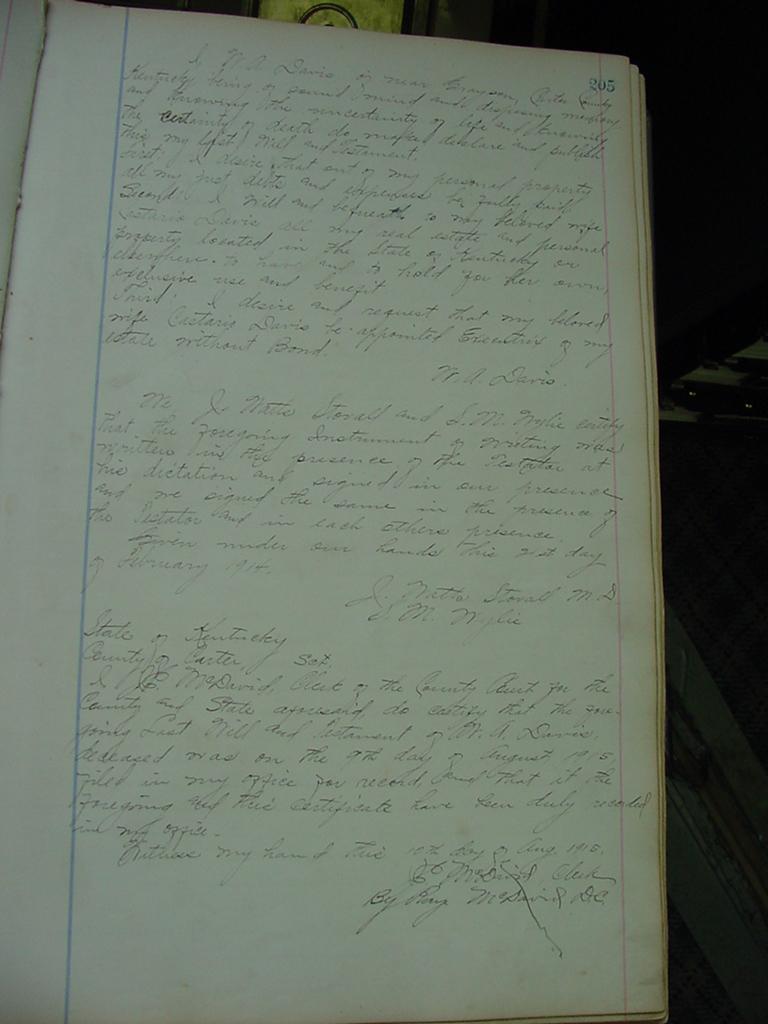 205
I W. A. Davis of near Grayson, Carter County
Kentucky being of sound mind and disposing memory
and knowing the uncertainty of life and knowing
the certainty of death do make declare and publish
this my last Will and Testament.
First: I desire that out of my personal property
all my just debts and expenses be fully paid.
Second: I Will and bequeath to my beloved wife
Castario Davis all my real estate and personal
property located in the State of Kentucky or
elsewhere. To have and to hold for her own,
exclusive use and benefit
Third: I desire and request that my beloved
wife Castario Davis be appointed Executrix of my
estate without Bond.
W. A. Davis.
We J. Watts Stovall and S. M. Wylie certify
that the foregoing Instrument of Writing was
written in the presence of the Testator at
his dictation and signed in our presence
and we signed the same in the presence of
the Testator and in each others presence.
Given under our hands this 21st day
of February 1914.
J. Watts Stovall M.D
S. M. Wylie
State of Kentucky
County of Carter, Sct.
I McDavid, Clerk of the County Court for the
County and State aforesaid, do certify that the fore-
going Last Will and Testament of W. A. Davis,
deceased was on the 9th day of August, 1915,
filed in my office for record, and that it the
foregoing and this certificate have been duly recorded
in my office.
Witness my hand this 10th day of Aug. 1915.
McDavid Clerk
By McDavid, D.C.